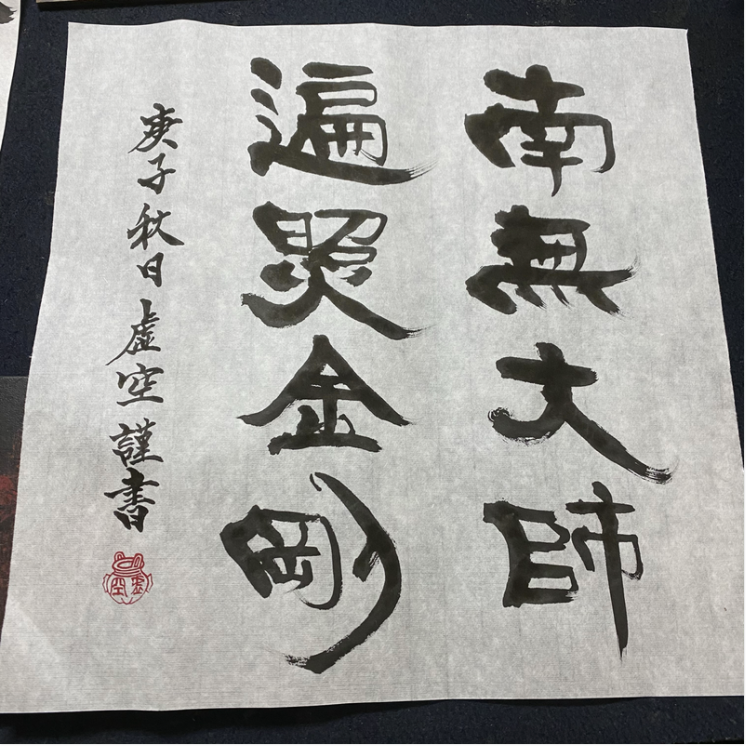 南無大師
遍照金剛
庚子秋日虚空謹書